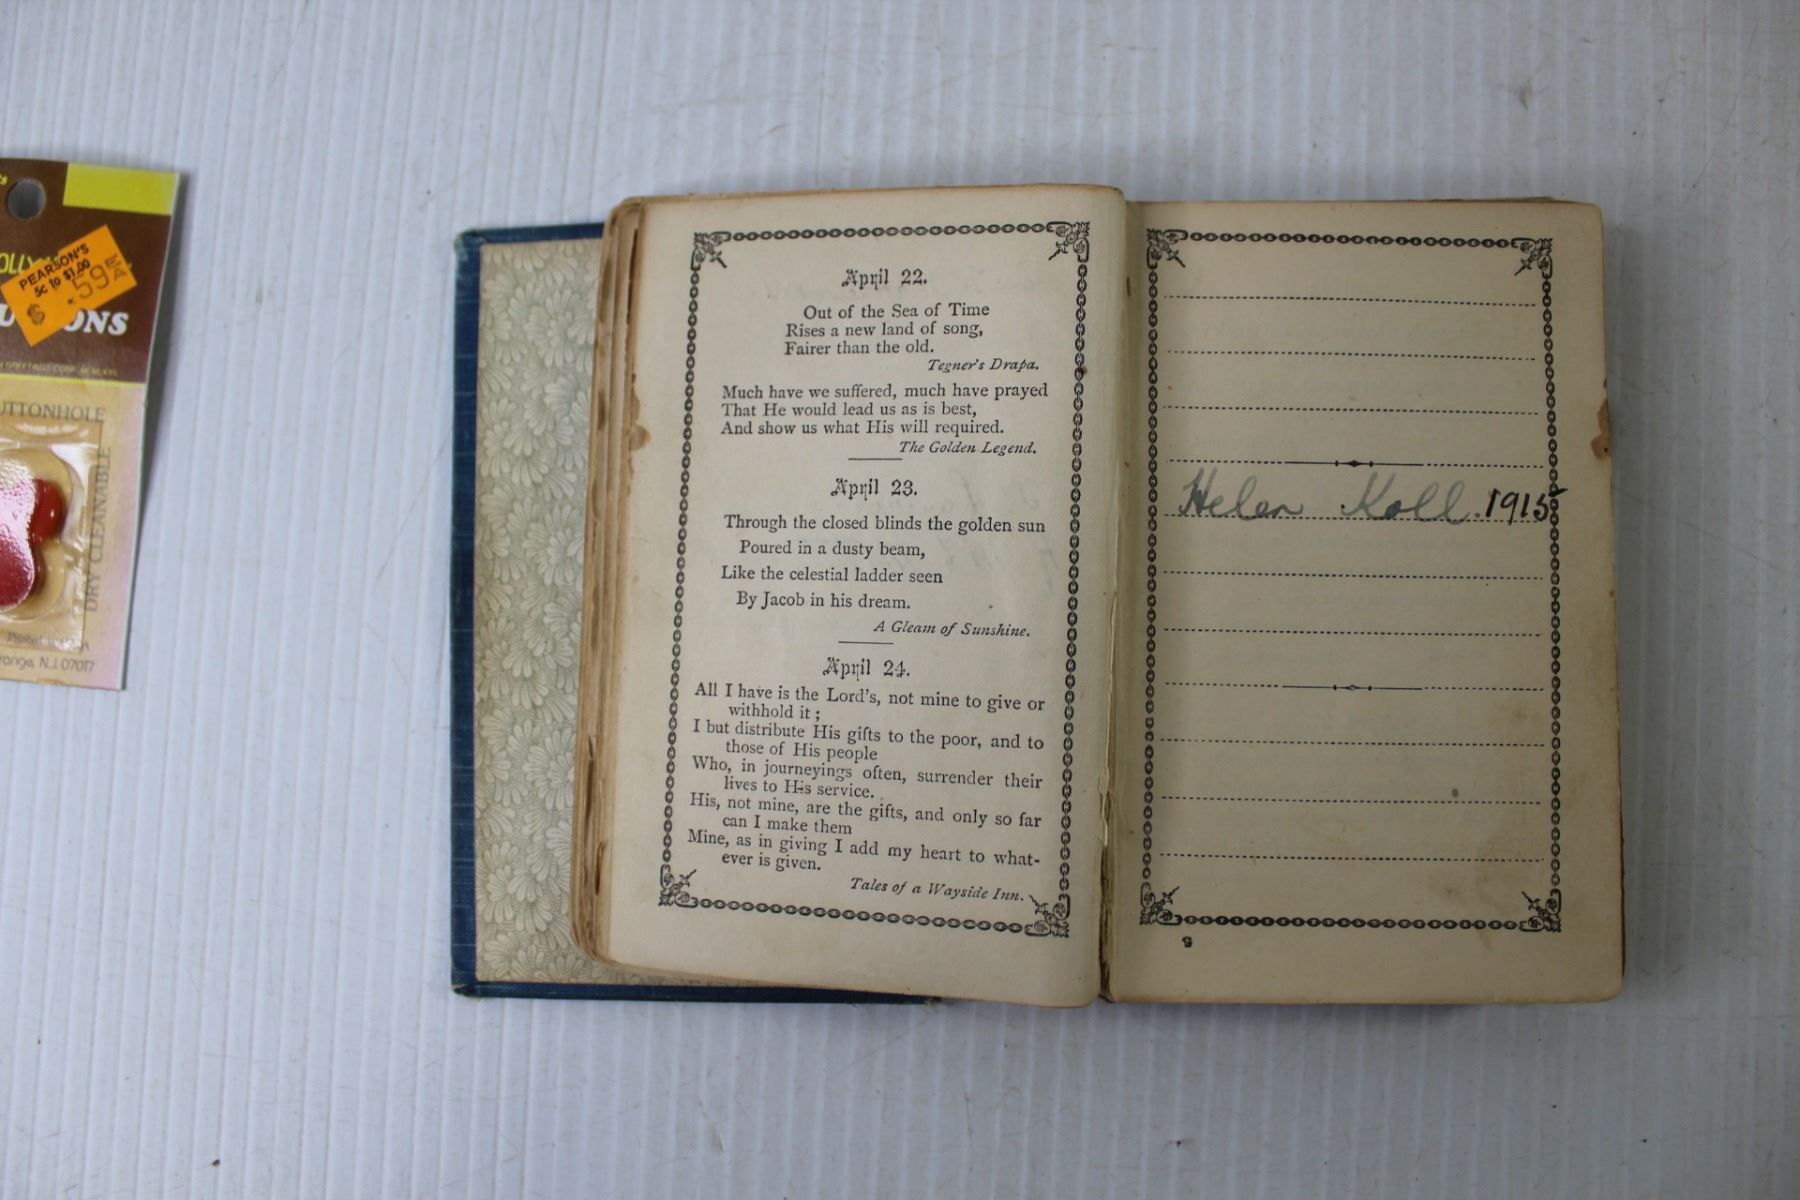 PEARSON'S
5c to $1.00
$ .59 EA
GREETINGS CORP. MCMLXXI
DRY CLEANABLE
N.J. 07017
April 22.
Out of the Sea of Time
Rises a new land of song,
Fairer than the old.
Tegner's Drapa.
Much have we suffered, much have prayed
That He would lead us as is best,
And show us what His will required.
The Golden Legend.
April 23.
Through the closed blinds the golden sun
Poured in a dusty beam,
Like the celestial ladder seen
By Jacob in his dream.
A Gleam of Sunshine.
April 24.
All I have is the Lord's, not mine to give or
withhold it ;
I but distribute His gifts to the poor, and to
those of His people
Who, in journeyings often, surrender their
lives to His service.
His, not mine, are the gifts, and only so far
can I make them
Mine, as in giving I add my heart to what-
ever is given.
Tales of a Wayside Inn.
Helen Koll. 1915